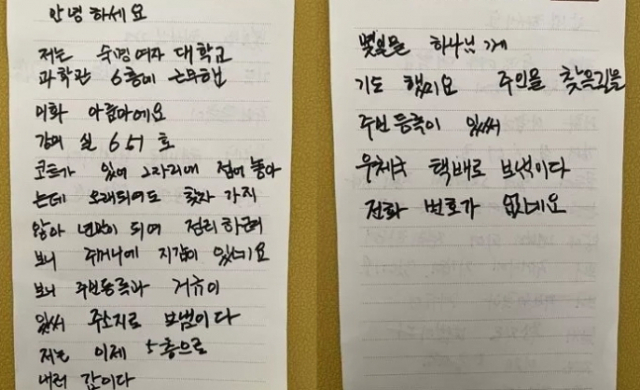 안녕하세요
저는 숙명여자 대학교
과학관 6층에 근무했
미화 아줌마에요
강의실 651호
코트가 있어 그자리에 접어 놓아
는데 오래되여도 찾자 가지
않아 년말이 되여 정리하려
보니 주머니에 지갑이 있느데요
보니 주민등록과 거규이
있써 주소지로 보냄이다
저는 이제 5층으로
내려 갑이다
몇일을 하나님게
기도 했미요 주인을 찾을길을
주민등록이 있써
우체국 택배로 보석이다
전화 번호가 없느데요